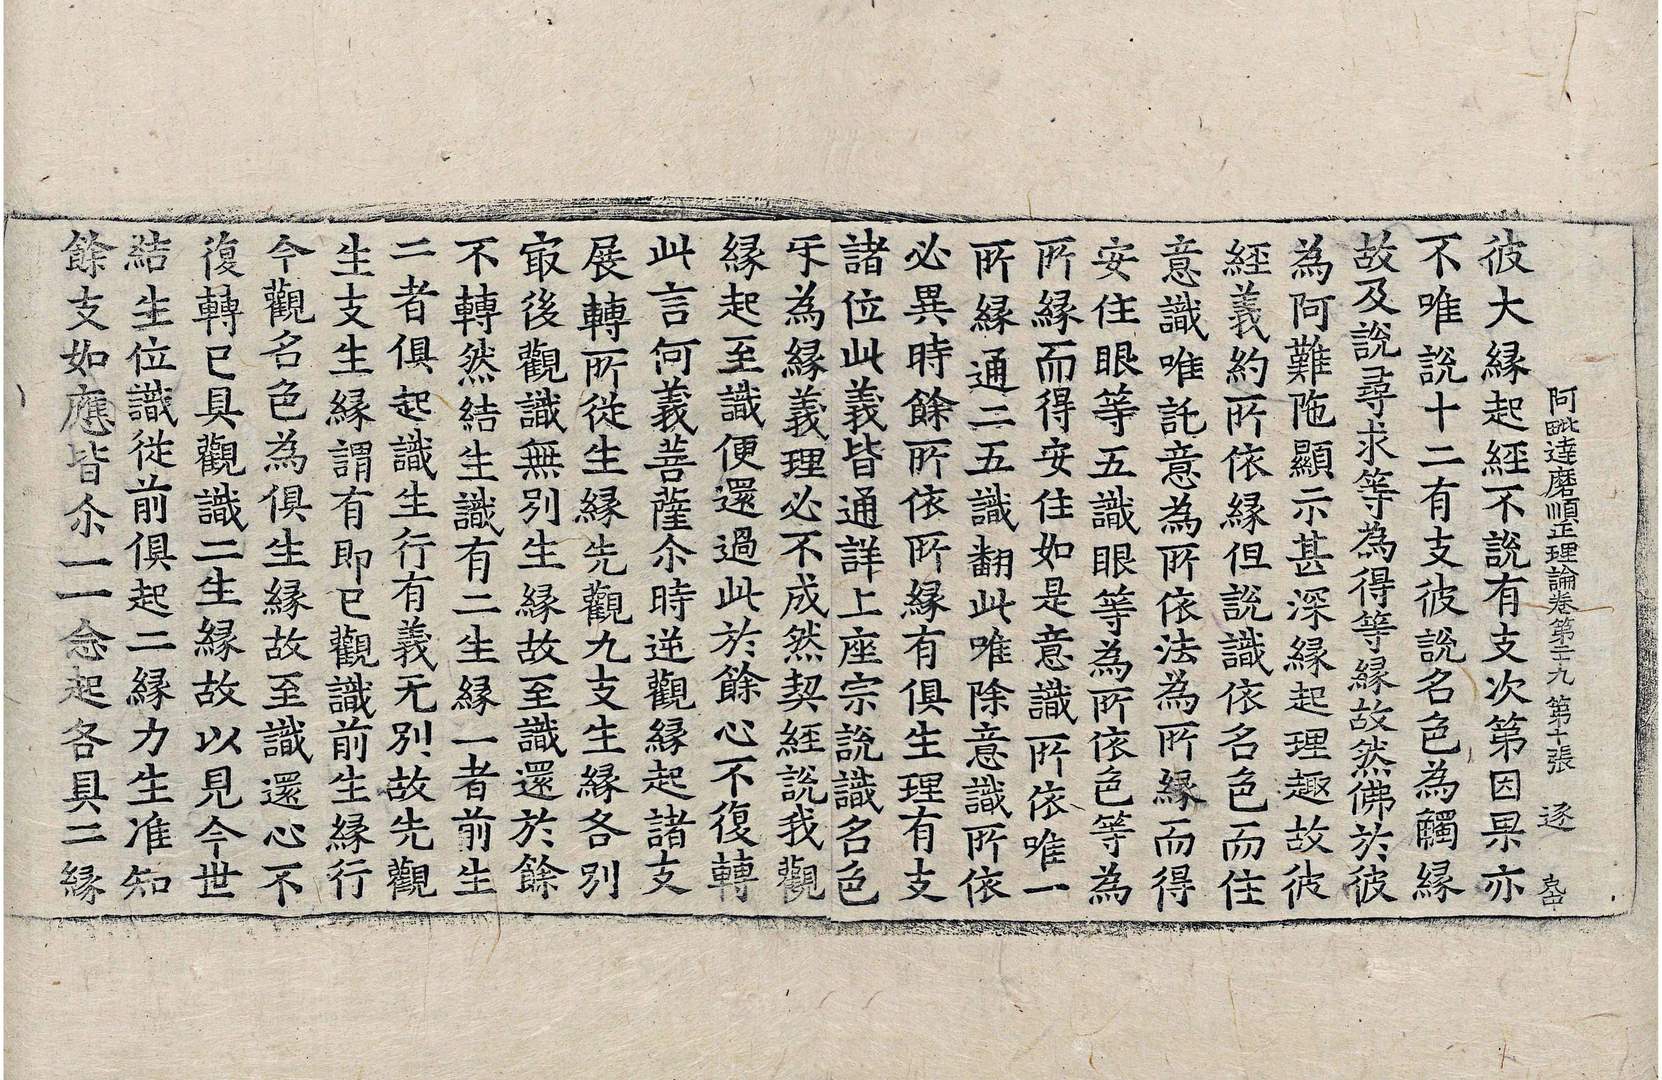 阿毗達磨順正理論卷第二十九 第十張 逐
彼大縁起經不說有支次第因果亦
不唯說十二有支彼說名色為觸縁
故及說尋求等為得等縁故然佛於彼
為阿難陁顯示甚深縁起理趣故彼
經義約所依縁但說識依名色而住
意識唯託意為所依法為所縁而得
安住眼等五識眼等為所依色等為
所縁而得安住如是意識所依唯一
所縁通二五識翻此唯除意識所依
必異時餘所依所縁有俱生理有支
諸位此義皆通詳上座宗說識名色
㸦為縁義理必不成然契經說我觀
縁起至識便還過此於餘心不復轉
此言何義菩薩尒時逆觀縁起諸支
展轉所從生縁先觀九支生縁各別
㝡後觀識無別生縁故至識還於餘
不轉然結生識有二生縁一者前生
二者俱起識生行有義无別故先觀
生支生縁謂有即已觀識前生縁行
今觀名色為俱生縁故至識還心不
復轉已具觀識二生縁故以見今世
結生位識從前俱起二縁力生准知
餘支如應皆尒一一念起各具二縁